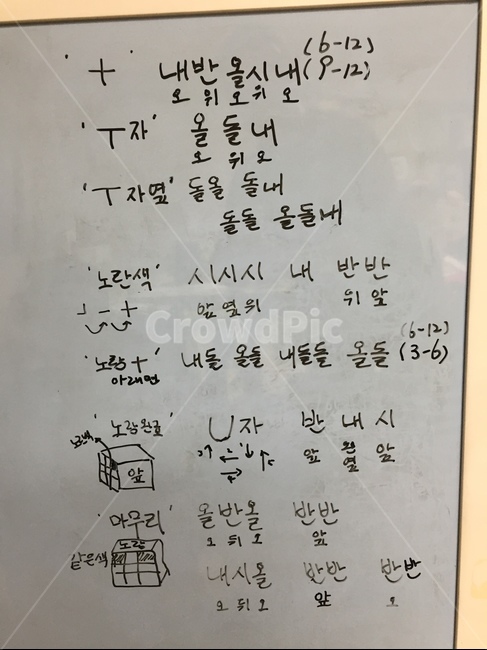 '+' 내반 올시내 (6-12) (9-12)
오 위 오 위 오
'ㅜ자' 올 돌 내
오 위 오
'ㅜ자옆' 돌올 돌내
돌돌 올돌내
'노란색' 시시시 내 반반
앞옆위 뒤 앞
'노랑+' 내돌 올돌 내돌돌 올돌 (6-12) (3-6)
아래면
'노랑완료' U자 반 내 시
앞 왼옆 앞
앞
'마무리' 올반올 반반
오 뒤 오 앞
노랑
같은색
내시올 반반 반반
오 뒤 오 앞 오
CrowdPic